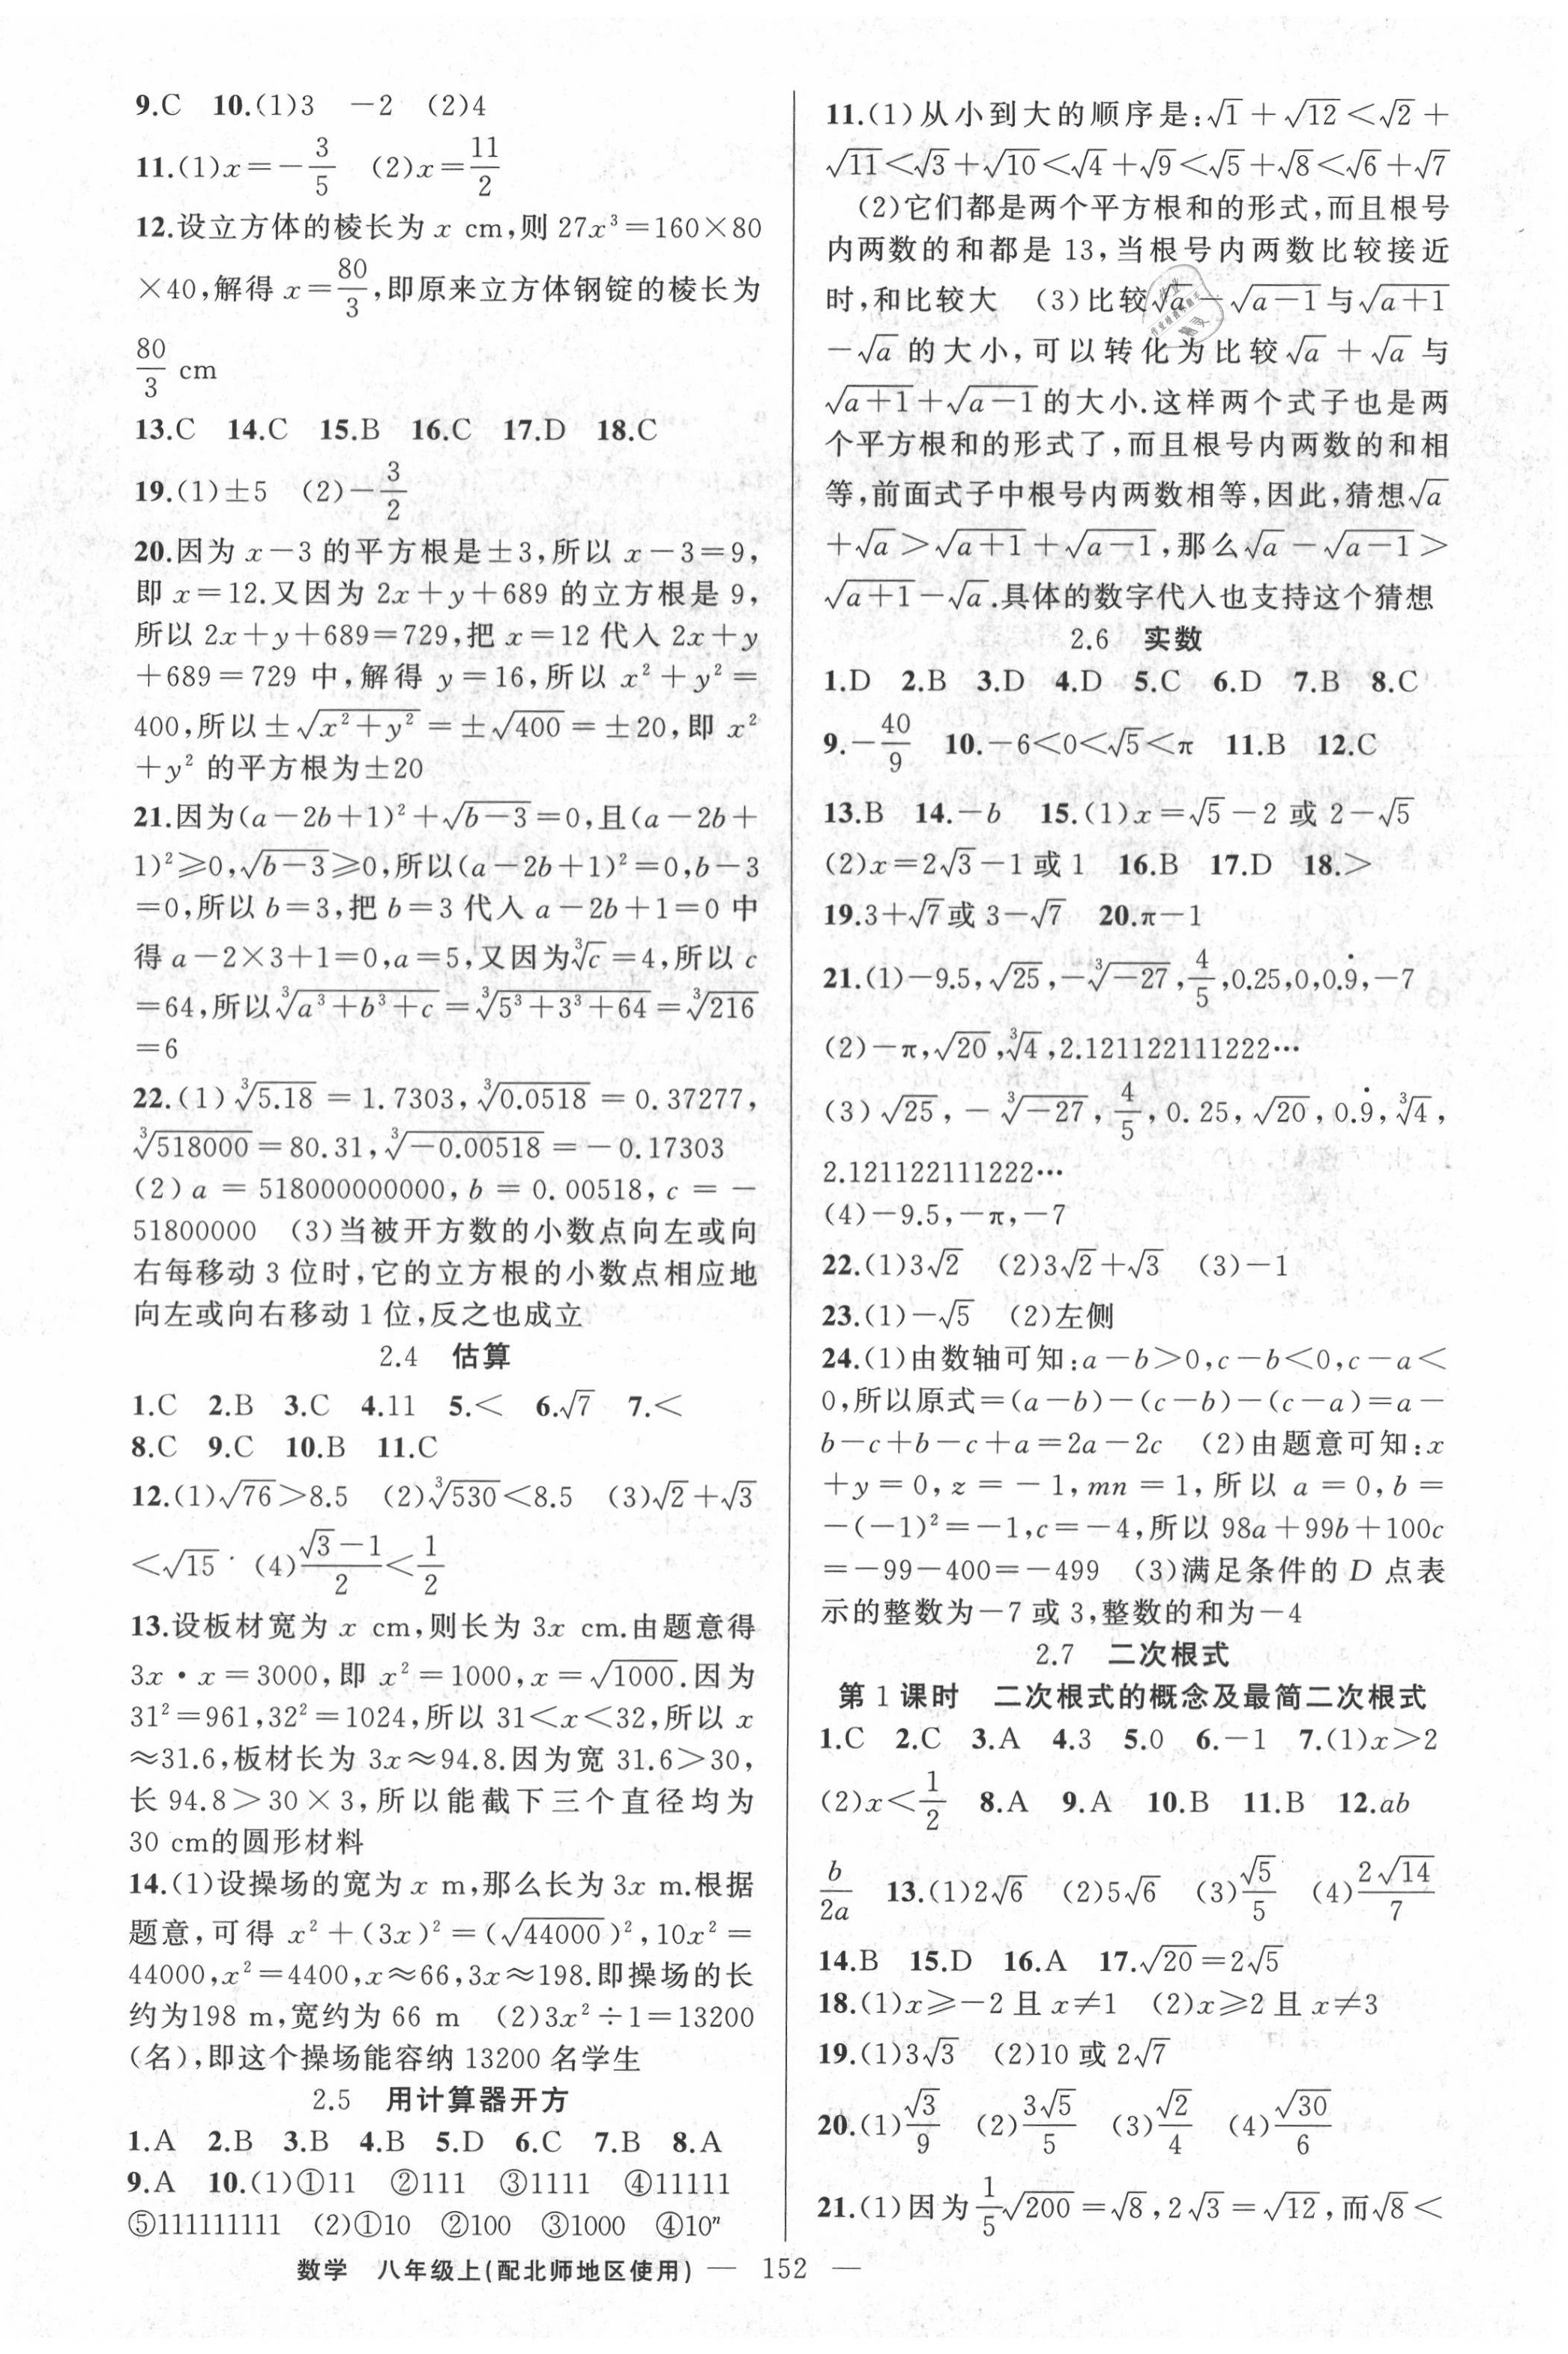 9.C 10.(1)3 －2 (2)4
11.(1)x＝－3/5 (2)x＝11/2
12.设立方体的棱长为 x cm,则 27x³＝160×80
×40,解得 x＝80/3,即原来立方体钢锭的棱长为
80/3 cm
13.C 14.C 15.B 16.C 17.D 18.C
19.(1)±5 (2)－3/2
20.因为 x－3 的平方根是±3,所以 x－3＝9,
即 x＝12.又因为 2x＋y＋689 的立方根是 9,
所以 2x＋y＋689＝729,把 x＝12 代入 2x＋y
＋689＝729 中,解得 y＝16,所以 x²＋y²＝
400,所以±√(x²＋y²)＝±√400＝±20,即 x²
＋y² 的平方根为±20
21.因为(a－2b＋1)²＋√(b－3)＝0,且(a－2b＋
1)²≥0,√(b－3)≥0,所以(a－2b＋1)²＝0,b－3
＝0,所以 b＝3,把 b＝3 代入 a－2b＋1＝0 中
得 a－2×3＋1＝0,a＝5,又因为∛c＝4,所以 c
＝64,所以∛(a³＋b³＋c)＝∛(5³＋3³＋64)＝∛216
＝6
22.(1)∛5.18＝1.7303,∛0.0518＝0.37277,
∛518000＝80.31,∛(－0.00518)＝－0.17303
(2)a＝518000000000,b＝0.00518,c＝－
51800000 (3)当被开方数的小数点向左或向
右每移动 3 位时,它的立方根的小数点相应地
向左或向右移动 1 位,反之也成立
2.4 估算
1.C 2.B 3.C 4.11 5.＜ 6.√7 7.＜
8.C 9.C 10.B 11.C
12.(1)√76＞8.5 (2)∛530＜8.5 (3)√2＋√3
＜√15 (4)(√3－1)/2＜1/2
13.设板材宽为 x cm,则长为 3x cm.由题意得
3x·x＝3000,即 x²＝1000,x＝√1000.因为
31²＝961,32²＝1024,所以 31＜x＜32,所以 x
≈31.6,板材长为 3x≈94.8.因为宽 31.6＞30,
长 94.8＞30×3,所以能截下三个直径均为
30 cm的圆形材料
14.(1)设操场的宽为 x m,那么长为 3x m.根据
题意,可得 x²＋(3x)²＝(√44000)²,10x²＝
44000,x²＝4400,x≈66,3x≈198.即操场的长
约为198 m,宽约为 66 m (2)3x²÷1＝13200
(名),即这个操场能容纳 13200 名学生
2.5 用计算器开方
1.A 2.B 3.B 4.B 5.D 6.C 7.B 8.A
9.A 10.(1)①11 ②111 ③1111 ④11111
⑤111111111 (2)①10 ②100 ③1000 ④10ⁿ
11.(1)从小到大的顺序是:√1＋√12＜√2＋
√11＜√3＋√10＜√4＋√9＜√5＋√8＜√6＋√7
(2)它们都是两个平方根和的形式,而且根号
内两数的和都是 13,当根号内两数比较接近
时,和比较大 (3)比较√a－√(a－1)与√(a＋1)
－√a 的大小,可以转化为比较√a＋√a 与
√(a＋1)＋√(a－1)的大小.这样两个式子也是两
个平方根和的形式了,而且根号内两数的和相
等,前面式子中根号内两数相等,因此,猜想√a
＋√a＞√(a＋1)＋√(a－1),那么√a－√(a－1)＞
√(a＋1)－√a.具体的数字代入也支持这个猜想
2.6 实数
1.D 2.B 3.D 4.D 5.C 6.D 7.B 8.C
9.－40/9 10.－6＜0＜√5＜π 11.B 12.C
13.B 14.－b 15.(1)x＝√5－2 或 2－√5
(2)x＝2√3－1 或 1 16.B 17.D 18.＞
19.3＋√7或 3－√7 20.π－1
21.(1)－9.5,√25,－∛(－27),4/5,0.25,0,0.9̇,－7
(2)－π,√20,∛4,2.121122111222⋯
(3)√25,－∛(－27),4/5,0.25,√20,0.9̇,∛4,
2.121122111222⋯
(4)－9.5,－π,－7
22.(1)3√2 (2)3√2＋√3 (3)－1
23.(1)－√5 (2)左侧
24.(1)由数轴可知:a－b＞0,c－b＜0,c－a＜
0,所以原式＝(a－b)－(c－b)－(c－a)＝a－
b－c＋b－c＋a＝2a－2c (2)由题意可知:x
＋y＝0,z＝－1,mn＝1,所以 a＝0,b＝
－(－1)²＝－1,c＝－4,所以 98a＋99b＋100c
＝－99－400＝－499 (3)满足条件的 D 点表
示的整数为－7 或 3,整数的和为－4
2.7 二次根式
第 1 课时 二次根式的概念及最简二次根式
1.C 2.C 3.A 4.3 5.0 6.－1 7.(1)x＞2
(2)x＜1/2 8.A 9.A 10.B 11.B 12.ab
b/2a 13.(1)2√6 (2)5√6 (3)√5/5 (4)2√14/7
14.B 15.D 16.A 17.√20＝2√5
18.(1)x≥－2 且 x≠1 (2)x≥2 且 x≠3
19.(1)3√3 (2)10 或 2√7
20.(1)√3/9 (2)3√5/5 (3)√2/4 (4)√30/6
21.(1)因为1/5√200＝√8,2√3＝√12,而√8＜
数学 八年级上(配北师地区使用) — 152 —